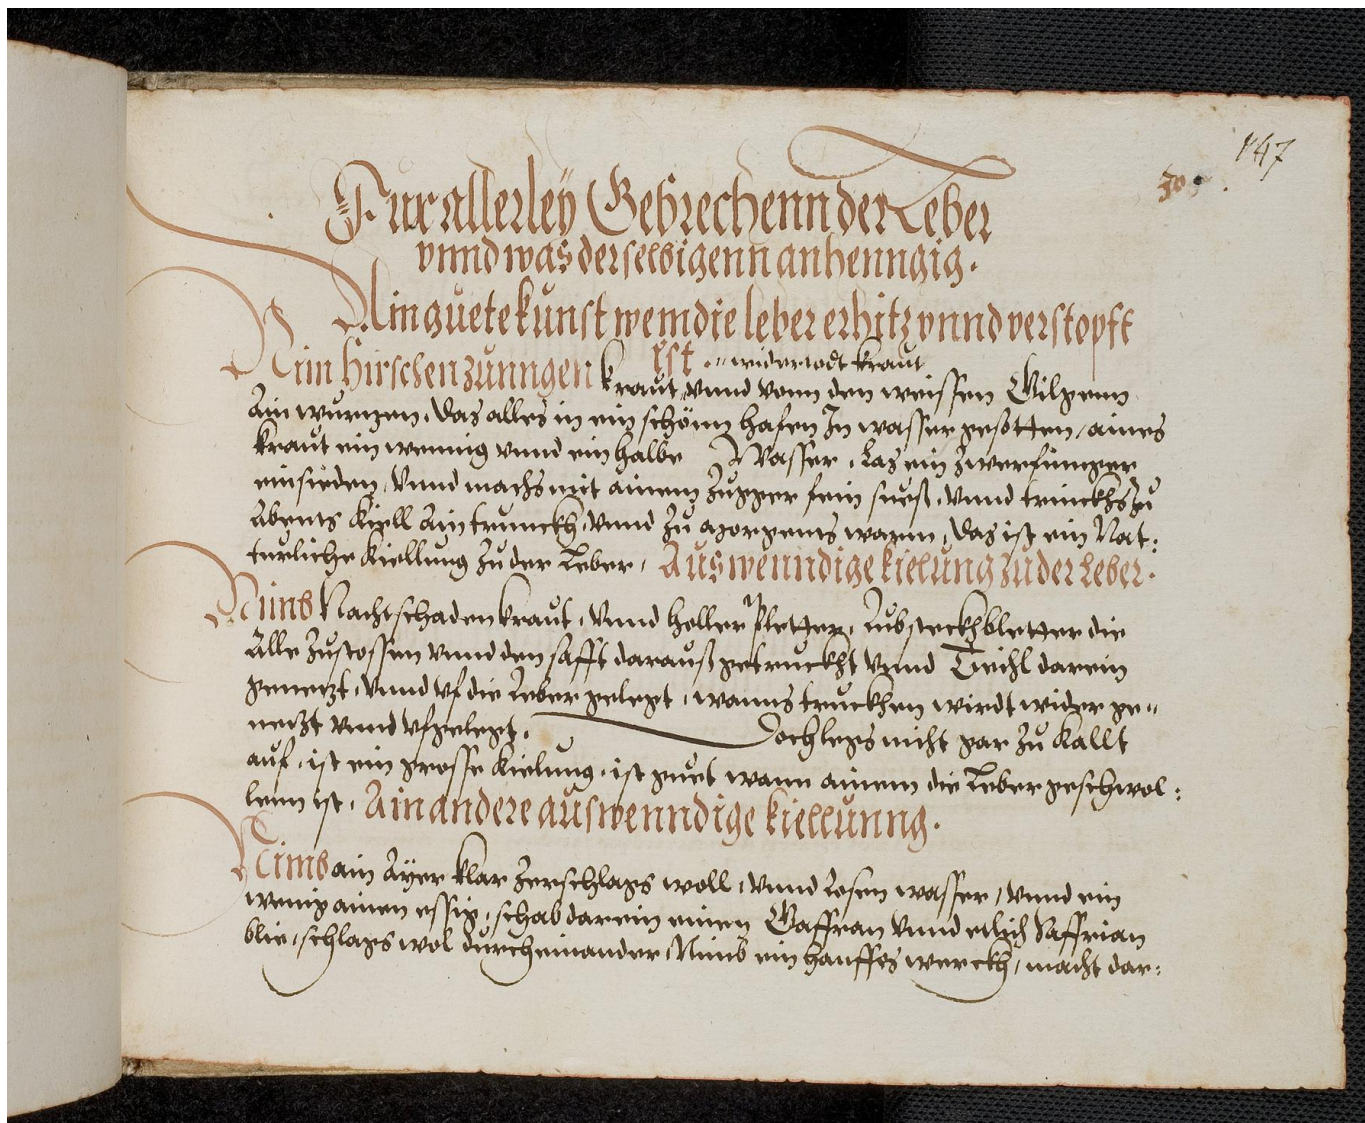 147
30.
Fur allerley Gebrechenn der Leber
vnnd was derselbigenn anhenngig.
Ain guete kunst wem die leber erhitz vnnd verstopft
ist .. widertodt kraut
Nim Hirschen zunngen kraut, vnnd vonn den weissen Gilgenn
Ain wurtzen. das alles in ein schönn hafen In wasser gesotten, aines
kraut ein wennig vnnd ein halbe Wasser, Las ein zwerfinnger
einsieden, vnnd machs mit ainem Zugger fein sueß, vnnd trinckhs zu
Abents kiell Ain trunckh, vnnd zu morgents warm, das ist ein Nat:
turliche kiellung zu der Leber, Auswenndige kielung zu der Leber.
Nimb Nachtschaden kraut, vnnd holler pletter, Lubsteckhbletter die
Alle zustossen vnnd den safft darauß getruckht vnnd Tiechl darein
genetzt, vnnd vf die Leber gelegt, wanns truckhen wirdt wider ge„
netzt vnnd vfgelegt. Doch legs nicht gar zu kallt
auf, ist ein grosse kielung, ist guet wann ainem die Leber geschwol:
lenn ist. Ain andere auswenndige kiellunng.
Nimb ain Ayer klar zerschlags woll, vnnd Rosen wasser, vnnd ein
wenig ainen essig, schab darein einen Gaffran vnnd etlich Saffrian
blie, schlags wol durcheinander, Nimb ein hanffes werckh, macht dar: